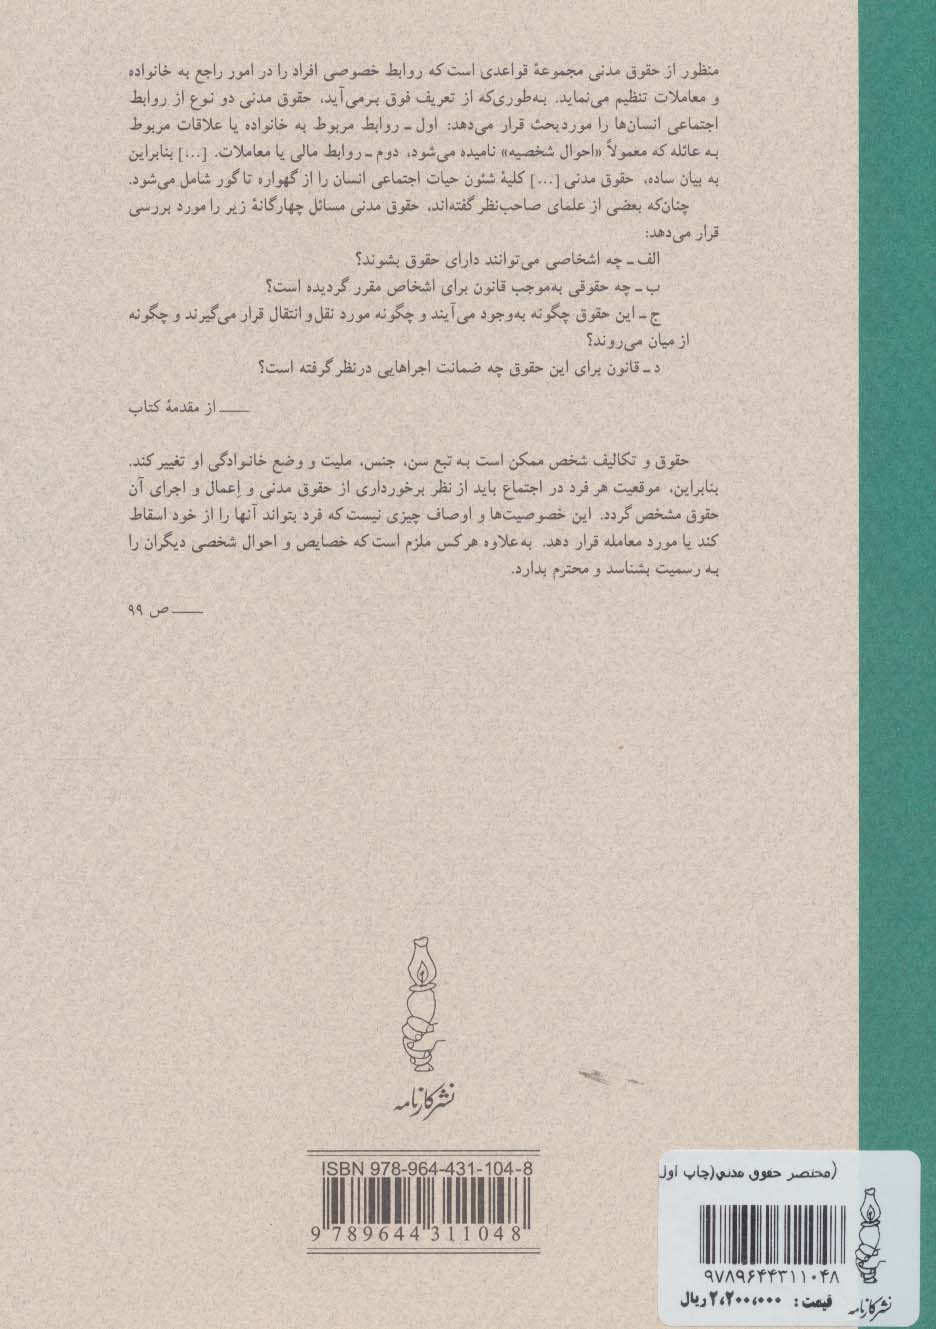 منظور از حقوق مدنی مجموعهٔ قواعدی است که روابط خصوصی افراد را در امور راجع به خانواده
و معاملات تنظیم می‌نماید. به‌طوری‌که از تعریف فوق برمی‌آید، حقوق مدنی دو نوع از روابط
اجتماعی انسان‌ها را مورد بحث قرار می‌دهد: اول ـ روابط مربوط به خانواده یا علاقات مربوط
به عائله که معمولاً «احوال شخصیه» نامیده می‌شود، دوم ـ روابط مالی یا معاملات. [...] بنابراین
به بیان ساده، حقوق مدنی [...] کلیهٔ شئون حیات اجتماعی انسان را از گهواره تا گور شامل می‌شود.
چنان‌که بعضی از علمای صاحب‌نظر گفته‌اند، حقوق مدنی مسائل چهارگانهٔ زیر را مورد بررسی
قرار می‌دهد:
الف ـ چه اشخاصی می‌توانند دارای حقوق بشوند؟
ب ـ چه حقوقی به‌موجب قانون برای اشخاص مقرر گردیده است؟
ج ـ این حقوق چگونه به‌وجود می‌آیند و چگونه مورد نقل و انتقال قرار می‌گیرند و چگونه
از میان می‌روند؟
د ـ قانون برای این حقوق چه ضمانت اجراهایی درنظر گرفته است؟
ـــــ از مقدمهٔ کتاب
حقوق و تکالیف شخص ممکن است به تبع سن، جنس، ملیت و وضع خانوادگی او تغییر کند.
بنابراین، موقعیت هر فرد در اجتماع باید از نظر برخورداری از حقوق مدنی و اِعمال و اجرای آن
حقوق مشخص گردد. این خصوصیت‌ها و اوصاف چیزی نیست که فرد بتواند آنها را از خود اسقاط
کند یا مورد معامله قرار دهد. به‌علاوه هرکس ملزم است که خصایص و احوال شخصی دیگران را
به رسمیت بشناسد و محترم بدارد.
ـــــ ص ۹۹
نشر کارنامه
ISBN 978-964-431-104-8
9 789644 311048
(مختصر حقوق مدنی(چاپ اول
۹۷۸۹۶۴۴۳۱۱۰۴۸
قیمت : ۲,۲۰۰,۰۰۰ ریال
نشر کارنامه